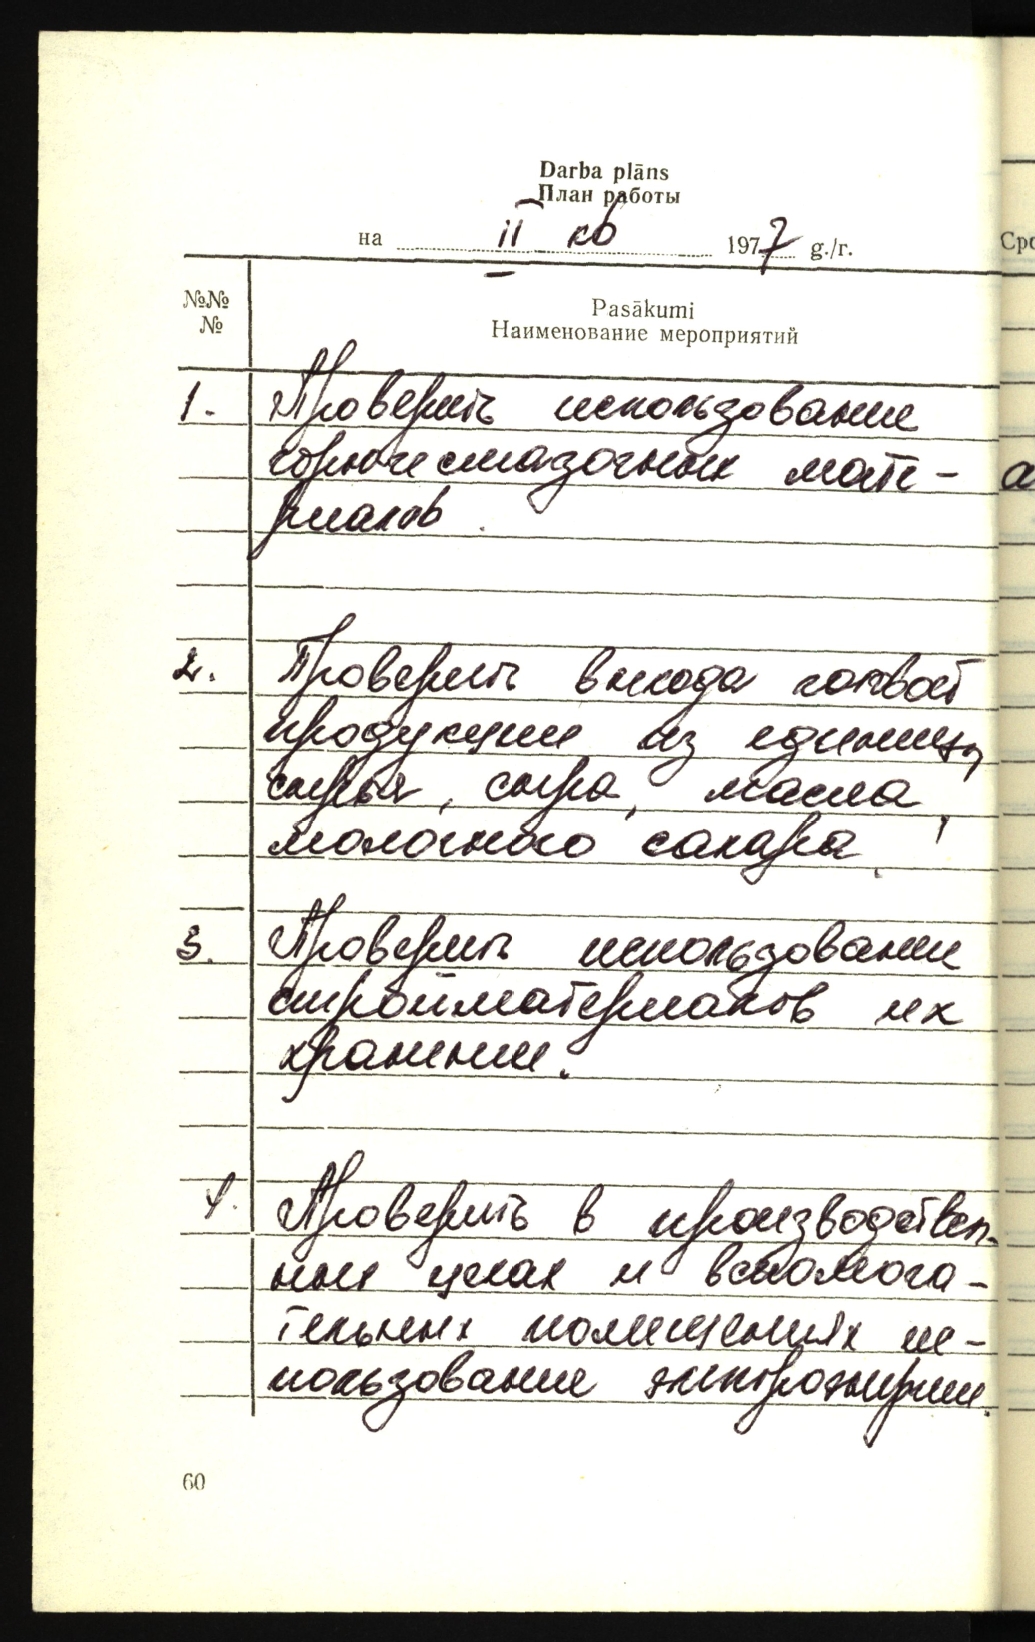 Darba plāns
План работы
на II кв 1977 g./г.
№№
№
Pasākumi
Наименование мероприятий
Сро
1. Проверить использование
горючесмазочных мате-
риалов.
2. Проверить выхода готовой
продукции из единицы
сырья, сыра, масла,
молочного сахара.
3. Проверить использование
стройматериалов их
хранение.
4. Проверить в производствен-
ных цехах и вспомога-
тельных помещениях ис-
пользование электроэнергии.
60